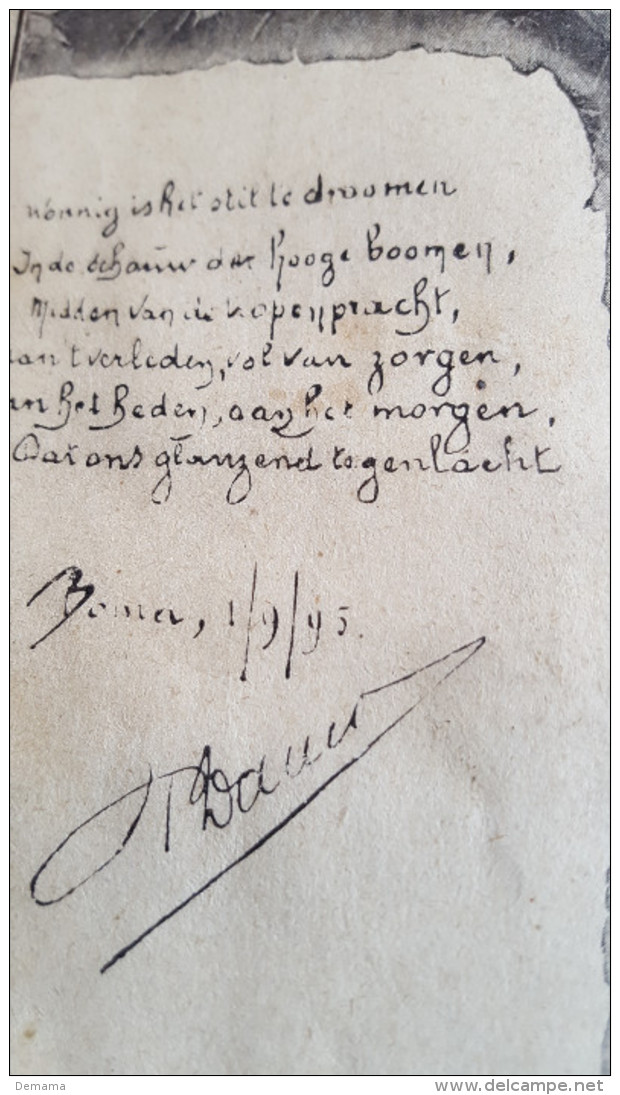 wonnig is het stil te droomen
In de schauw der hooge boomen,
Midden van de tropenpracht,
aan t verleden, vol van zorgen,
an het heden, aan het morgen,
Dat ons glanzend tegenlacht
Boma, 1/9/95.
Demama
www.delcampe.net